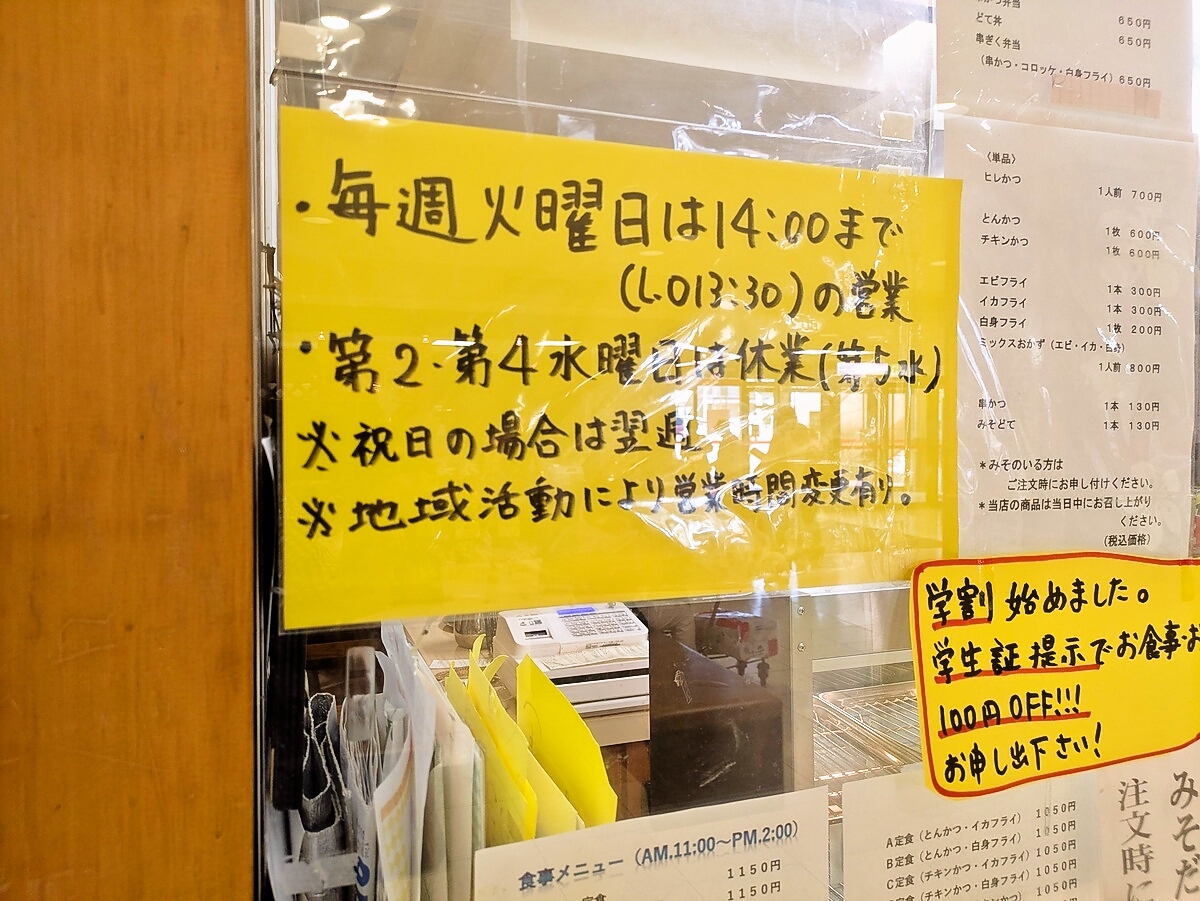 ・毎週火曜日は14:00まで
(L.O13:30)の営業
・第2・第4水曜日は休業(第5水)
※祝日の場合は翌週
※地域活動により営業時間変更有り。
どて丼 650円
串ぎく弁当 650円
(串かつ・コロッケ・白身フライ) 650円
〈単品〉
ヒレかつ
1人前 700円
とんかつ 1枚 600円
チキンかつ 1枚 600円
エビフライ 1本 300円
イカフライ 1本 300円
白身フライ 1枚 200円
ミックスおかず(エビ・イカ・白身)
1人前 800円
串かつ 1本 130円
みそどて 1本 130円
*みそのいる方は
ご注文時にお申し付けください。
*当店の商品は当日中にお召し上がり
ください。
(税込価格)
学割始めました。
学生証提示でお食事・お
100円OFF!!!
お申し出下さい!
食事メニュー(AM.11:00〜PM.2:00)
1150円
1150円
1050円
A定食(とんかつ・イカフライ) 1050円
B定食(とんかつ・白身フライ) 1050円
C定食(チキンかつ・イカフライ) 1050円
(チキンかつ・白身フライ) 1050円
みそだ
注文時に